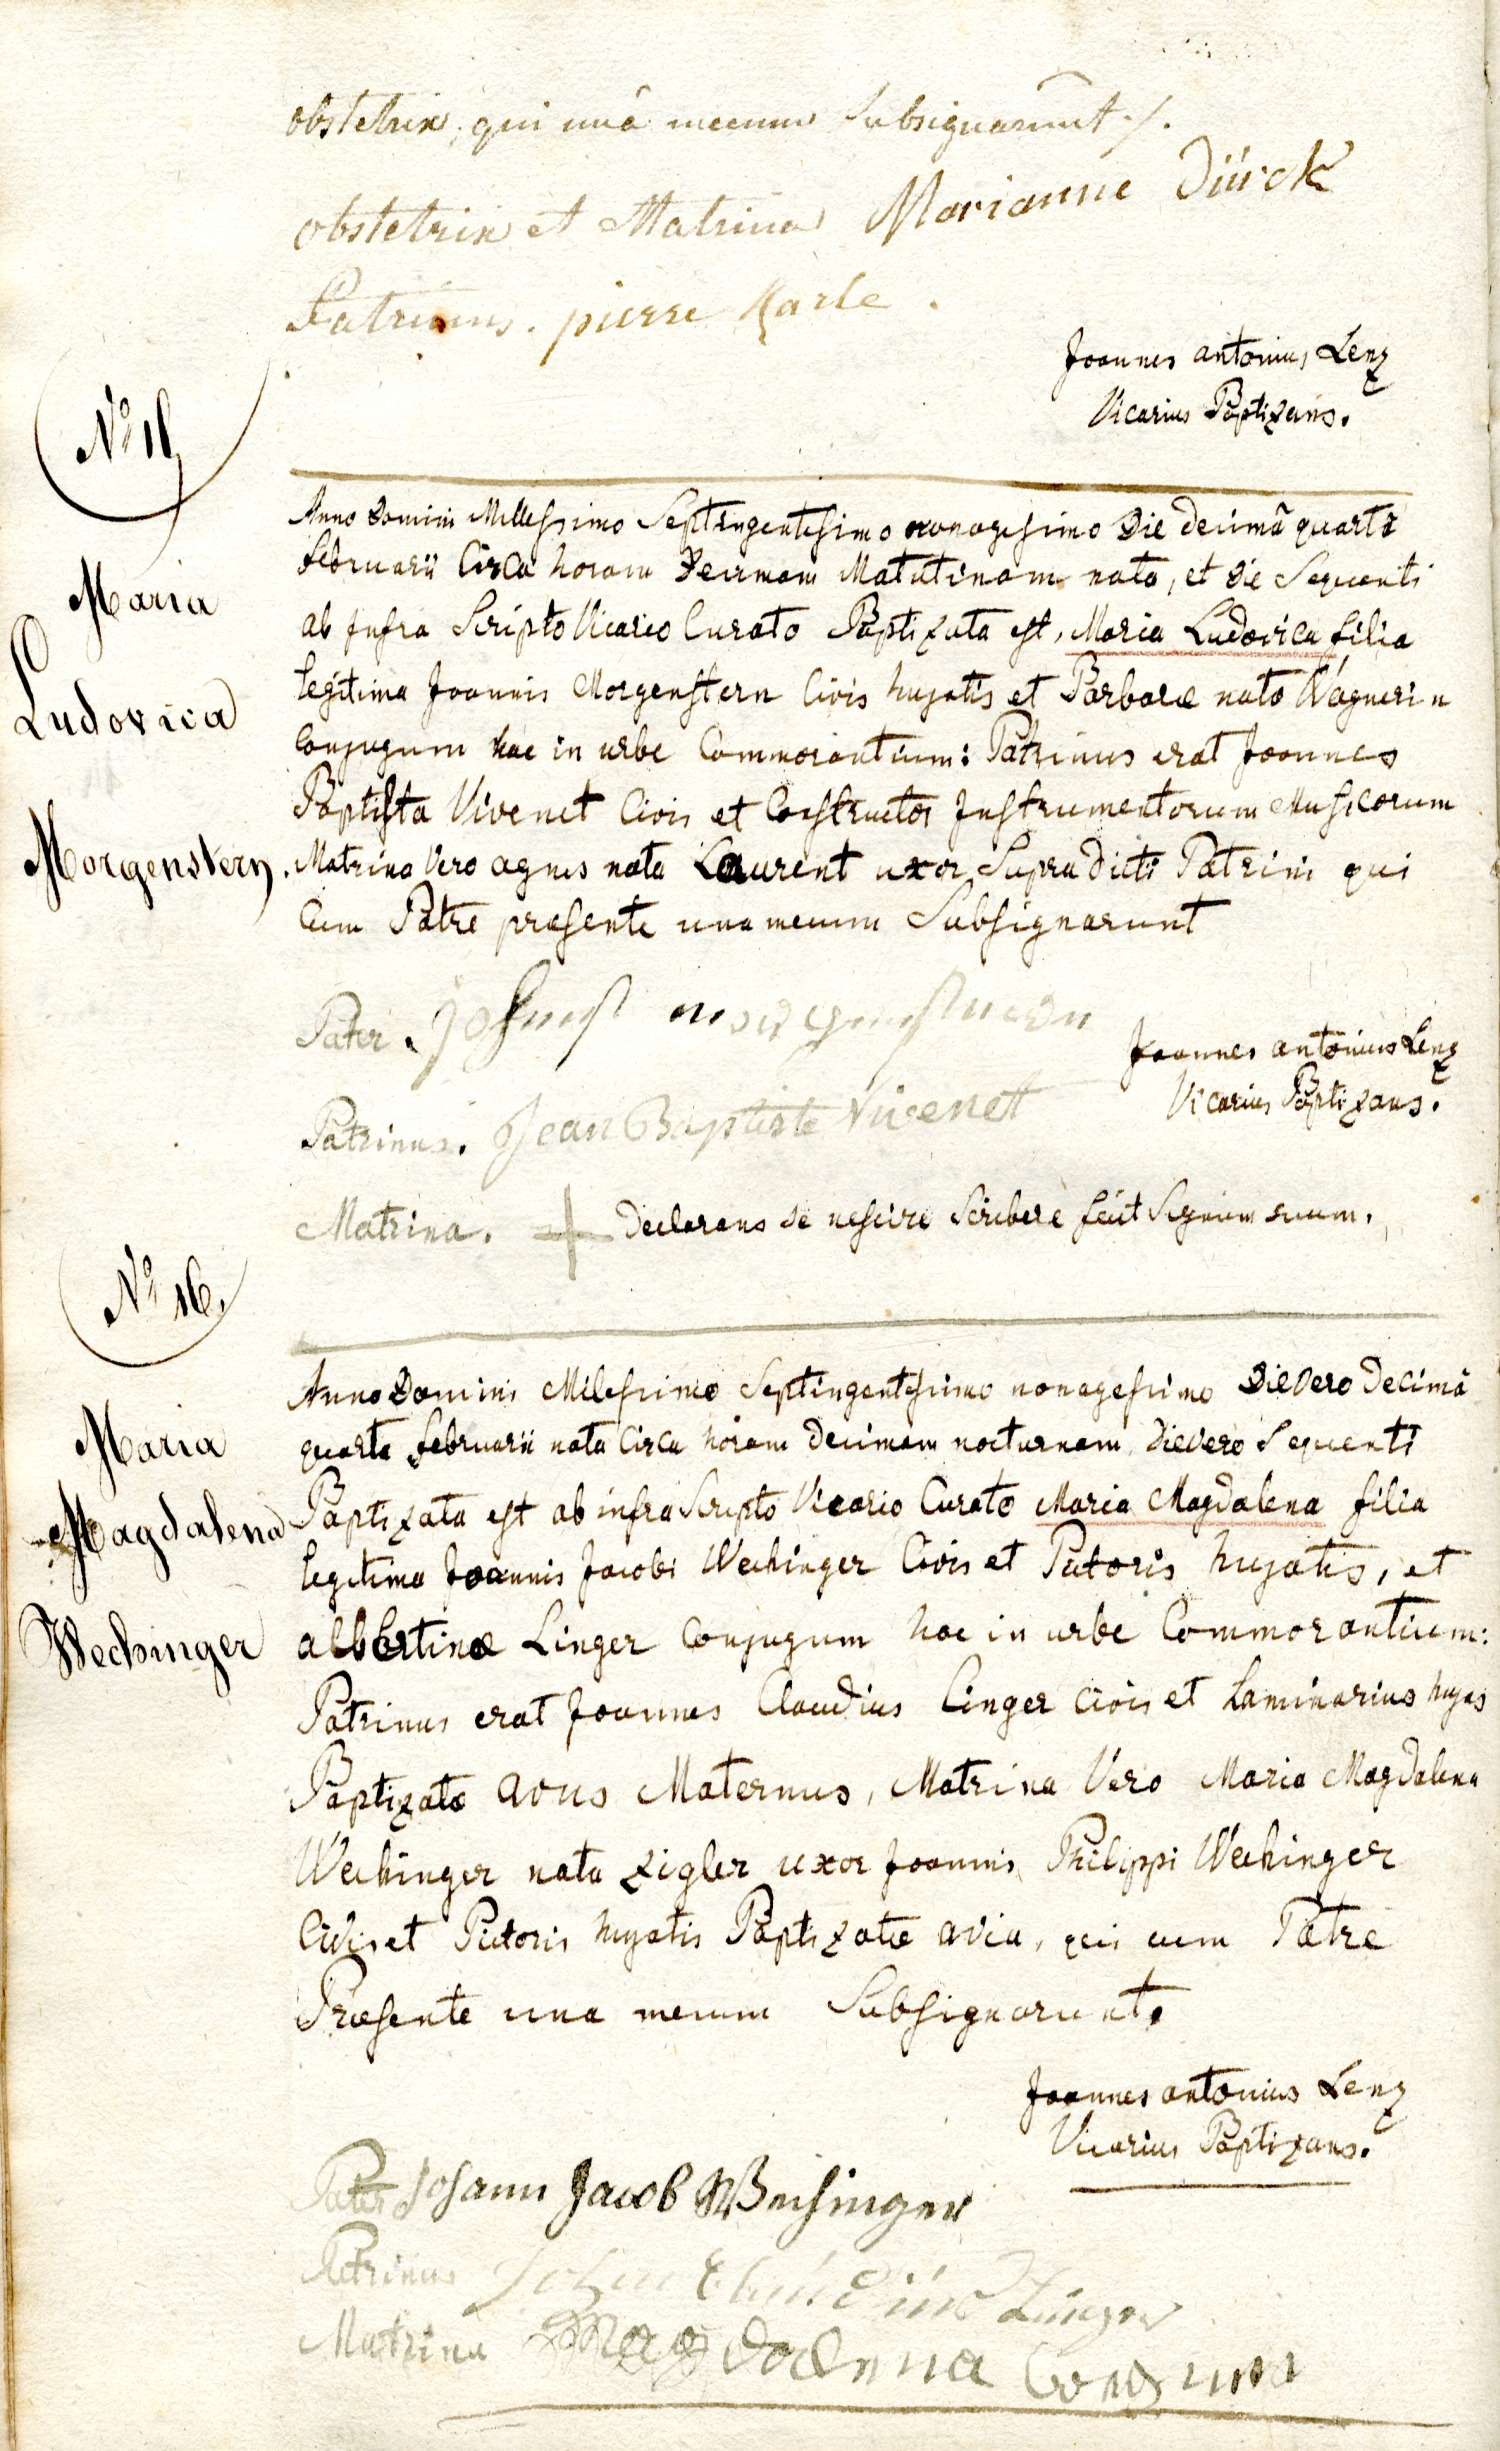 obstetrix, qui unâ mecum Subsignarunt ./.
obstetrix et Matrina Marianne Dürck
Patrinus. pierre Karle.
Joannes antonius Lenz
Vicarius Baptizans.
Nº 15
Maria
Ludovica
Morgenstern.
Anno Domini Millessimo Septingentesimo nonagesimo Die decimâ quartâ
februarii Circa horam Decimam Matutinam nata, et Die Sequenti
ab Infra Scripto Vicario Curato Baptizata est, Maria Ludovica filia
legitima Joannis Morgenstern Civis hujatis et Barbaræ nata Wagnerin
Conjugum hac in urbe Commorantium: Patrinus erat Joannes
Baptista Vivenet Civis et Constructor Instrumentorum Musicorum
Matrina Vero agnes nata Laurent uxor Supra dicti Patrini qui
Cum Patre præsente una mecum Subsignarunt
Pater.
Joannes antonius Lenz
Vicarius Baptizans.
Patrinus. Jean Baptiste Vivenet
Matrina. + Declarans se nescire Scribere fecit Signum suum.
Nº 16.
Maria
Magdalena
Wechinger
Anno Domini Milessimo Septingentesimo nonagessimo Die Vero decimâ
quarta februarii nata Circa horam decimam nocturnam, die vero Sequenti
Baptizata est ab infra Scripto Vicario Curato Maria Magdalena filia
legitima Joannis Jacobi Wechinger Civis et Pictoris hujatis, et
albertinæ Linger Conjugum hac in urbe Commorantium:
Patrinus erat Joannes Claudius Linger Civis et Laminarius hujas
Baptizatæ avus Maternus, Matrina Vero Maria Magdalena
Wechinger nata Zigler uxor Joannis Philippi Wechinger
Civis et Pictoris hujatis Baptizatæ avia, qui cum Patre
Præsente una mecum Subsignarunt.
Joannes antonius Lenz
Vicarius Baptizans.
Pater Johann Jacob Wechinger
Patrinus Linger
Matrina Magdalena